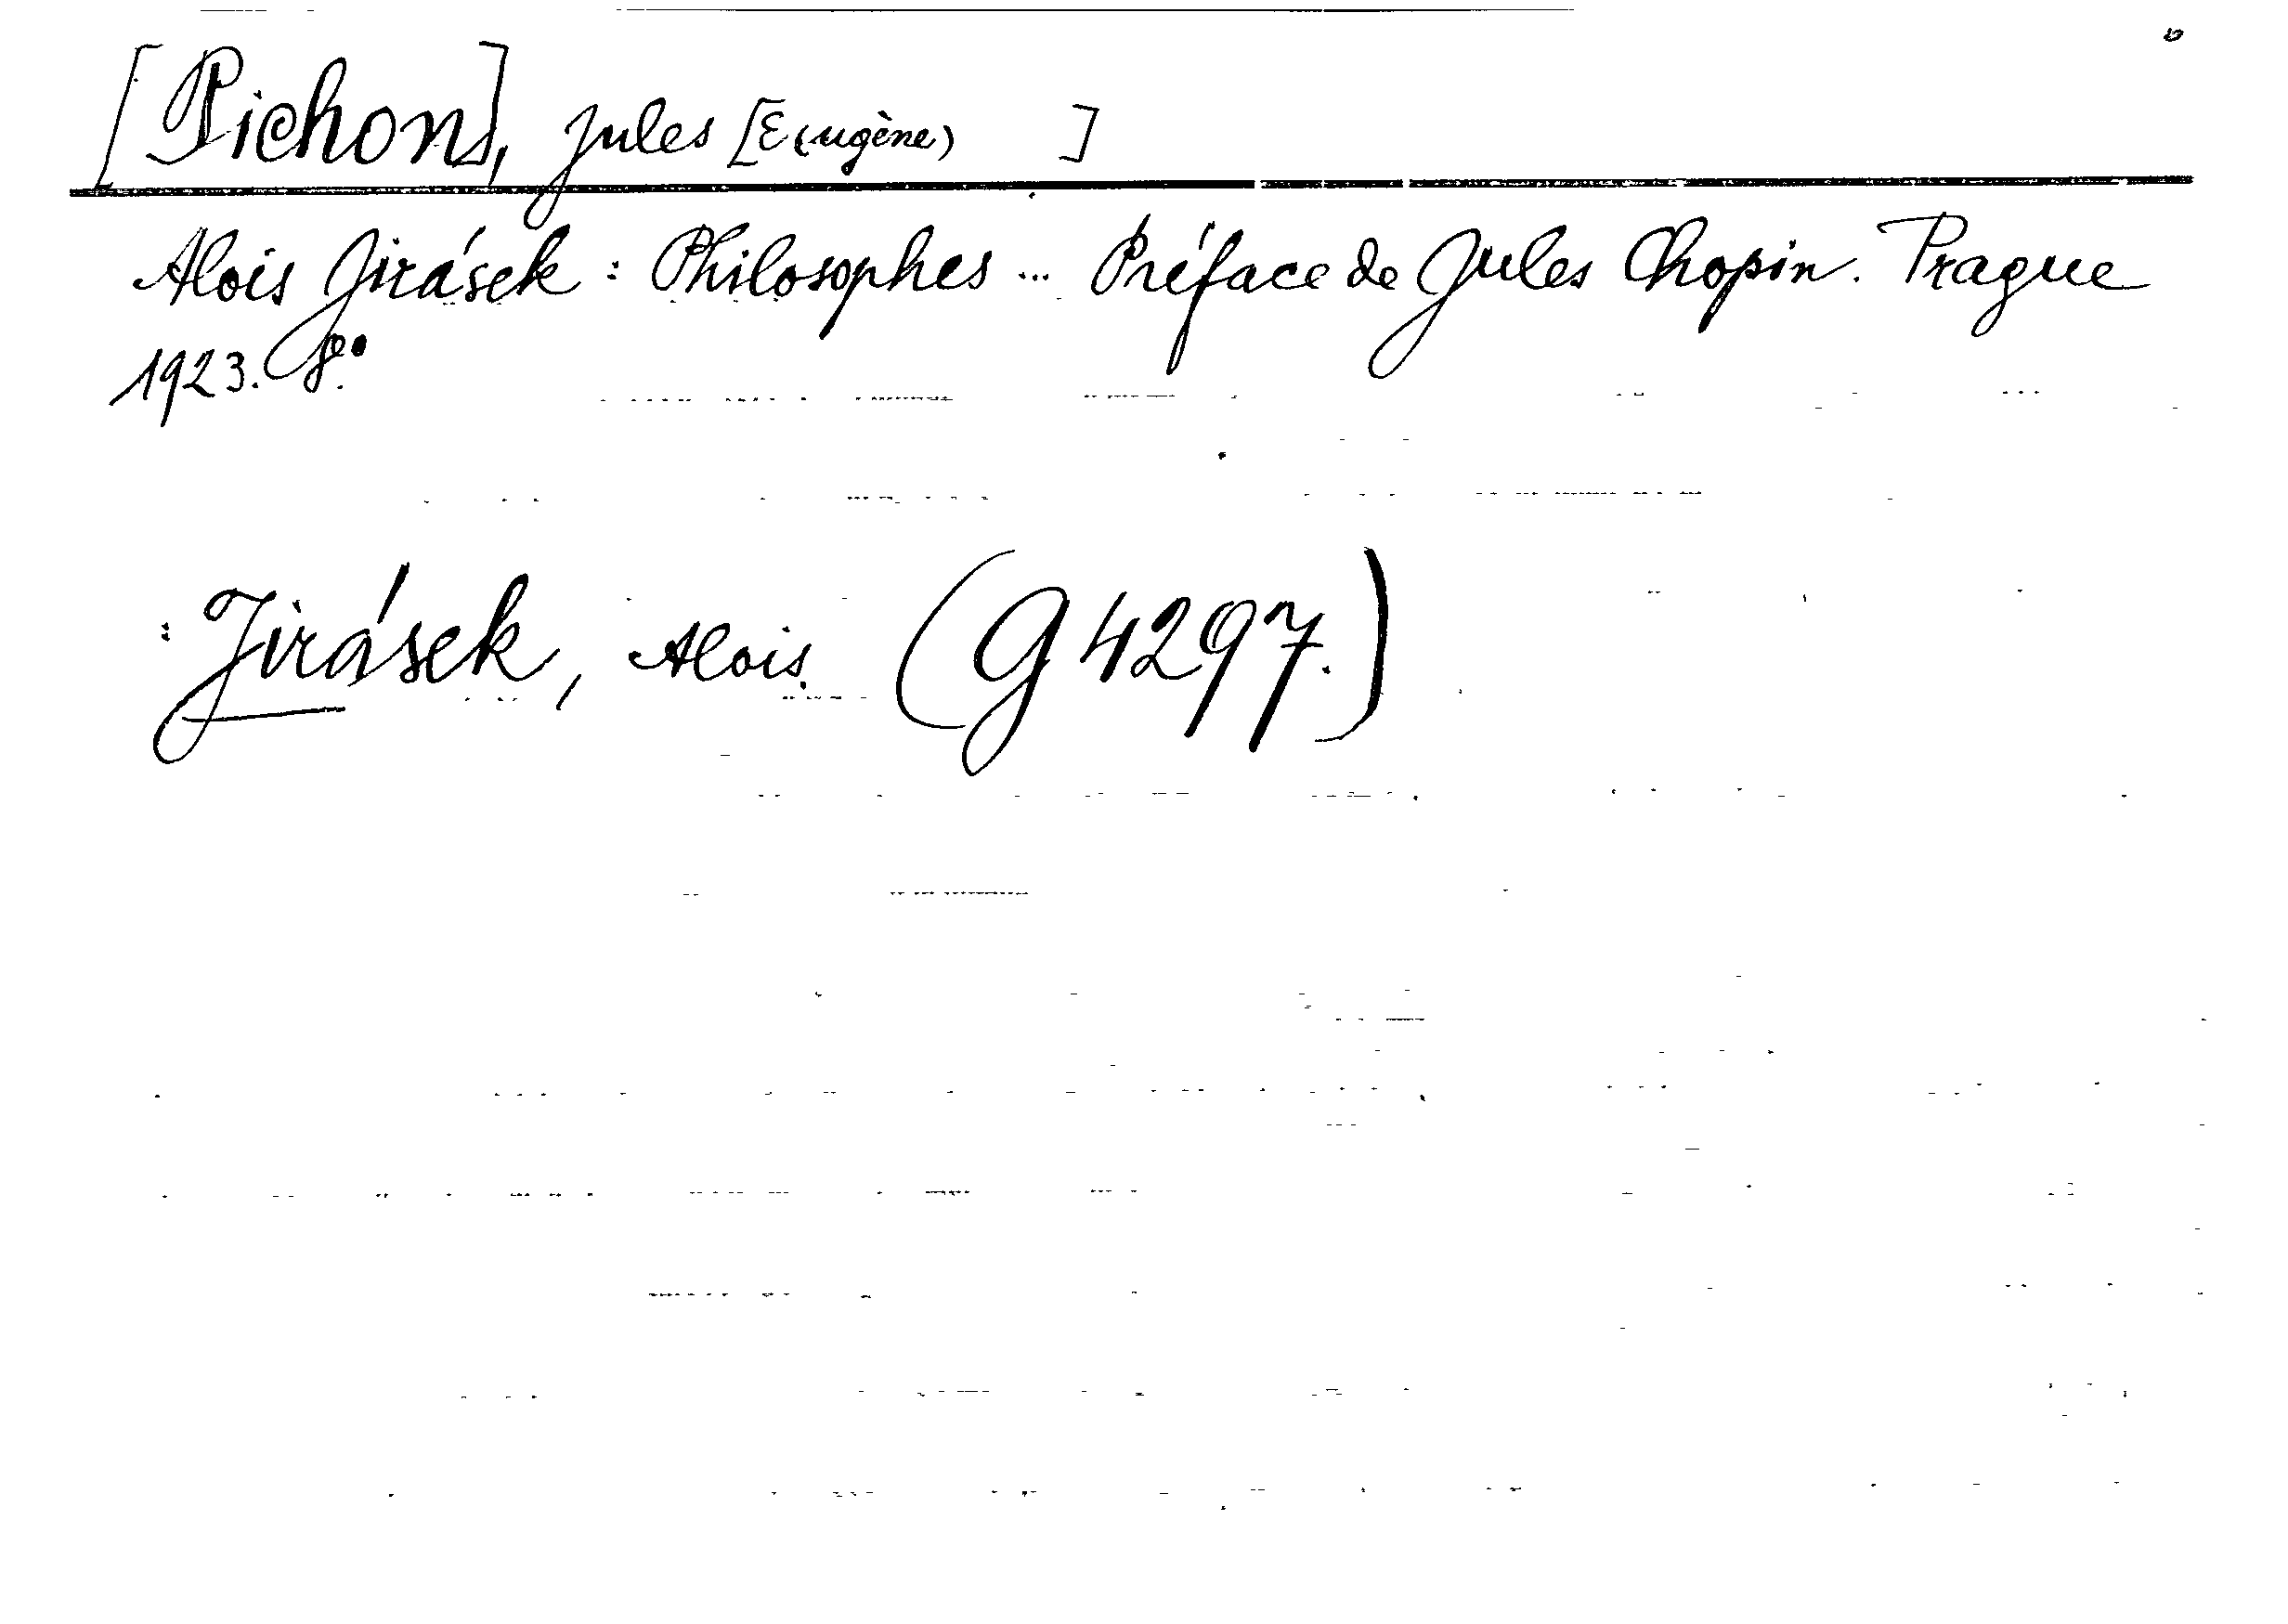 [Pichon], Jules [E(ugène) ]
Alois Jirásek : Philosophes ... Préface de Jules Chopin. Prague
1923. 8°.
: Jirásek, Alois. (G 4297.)